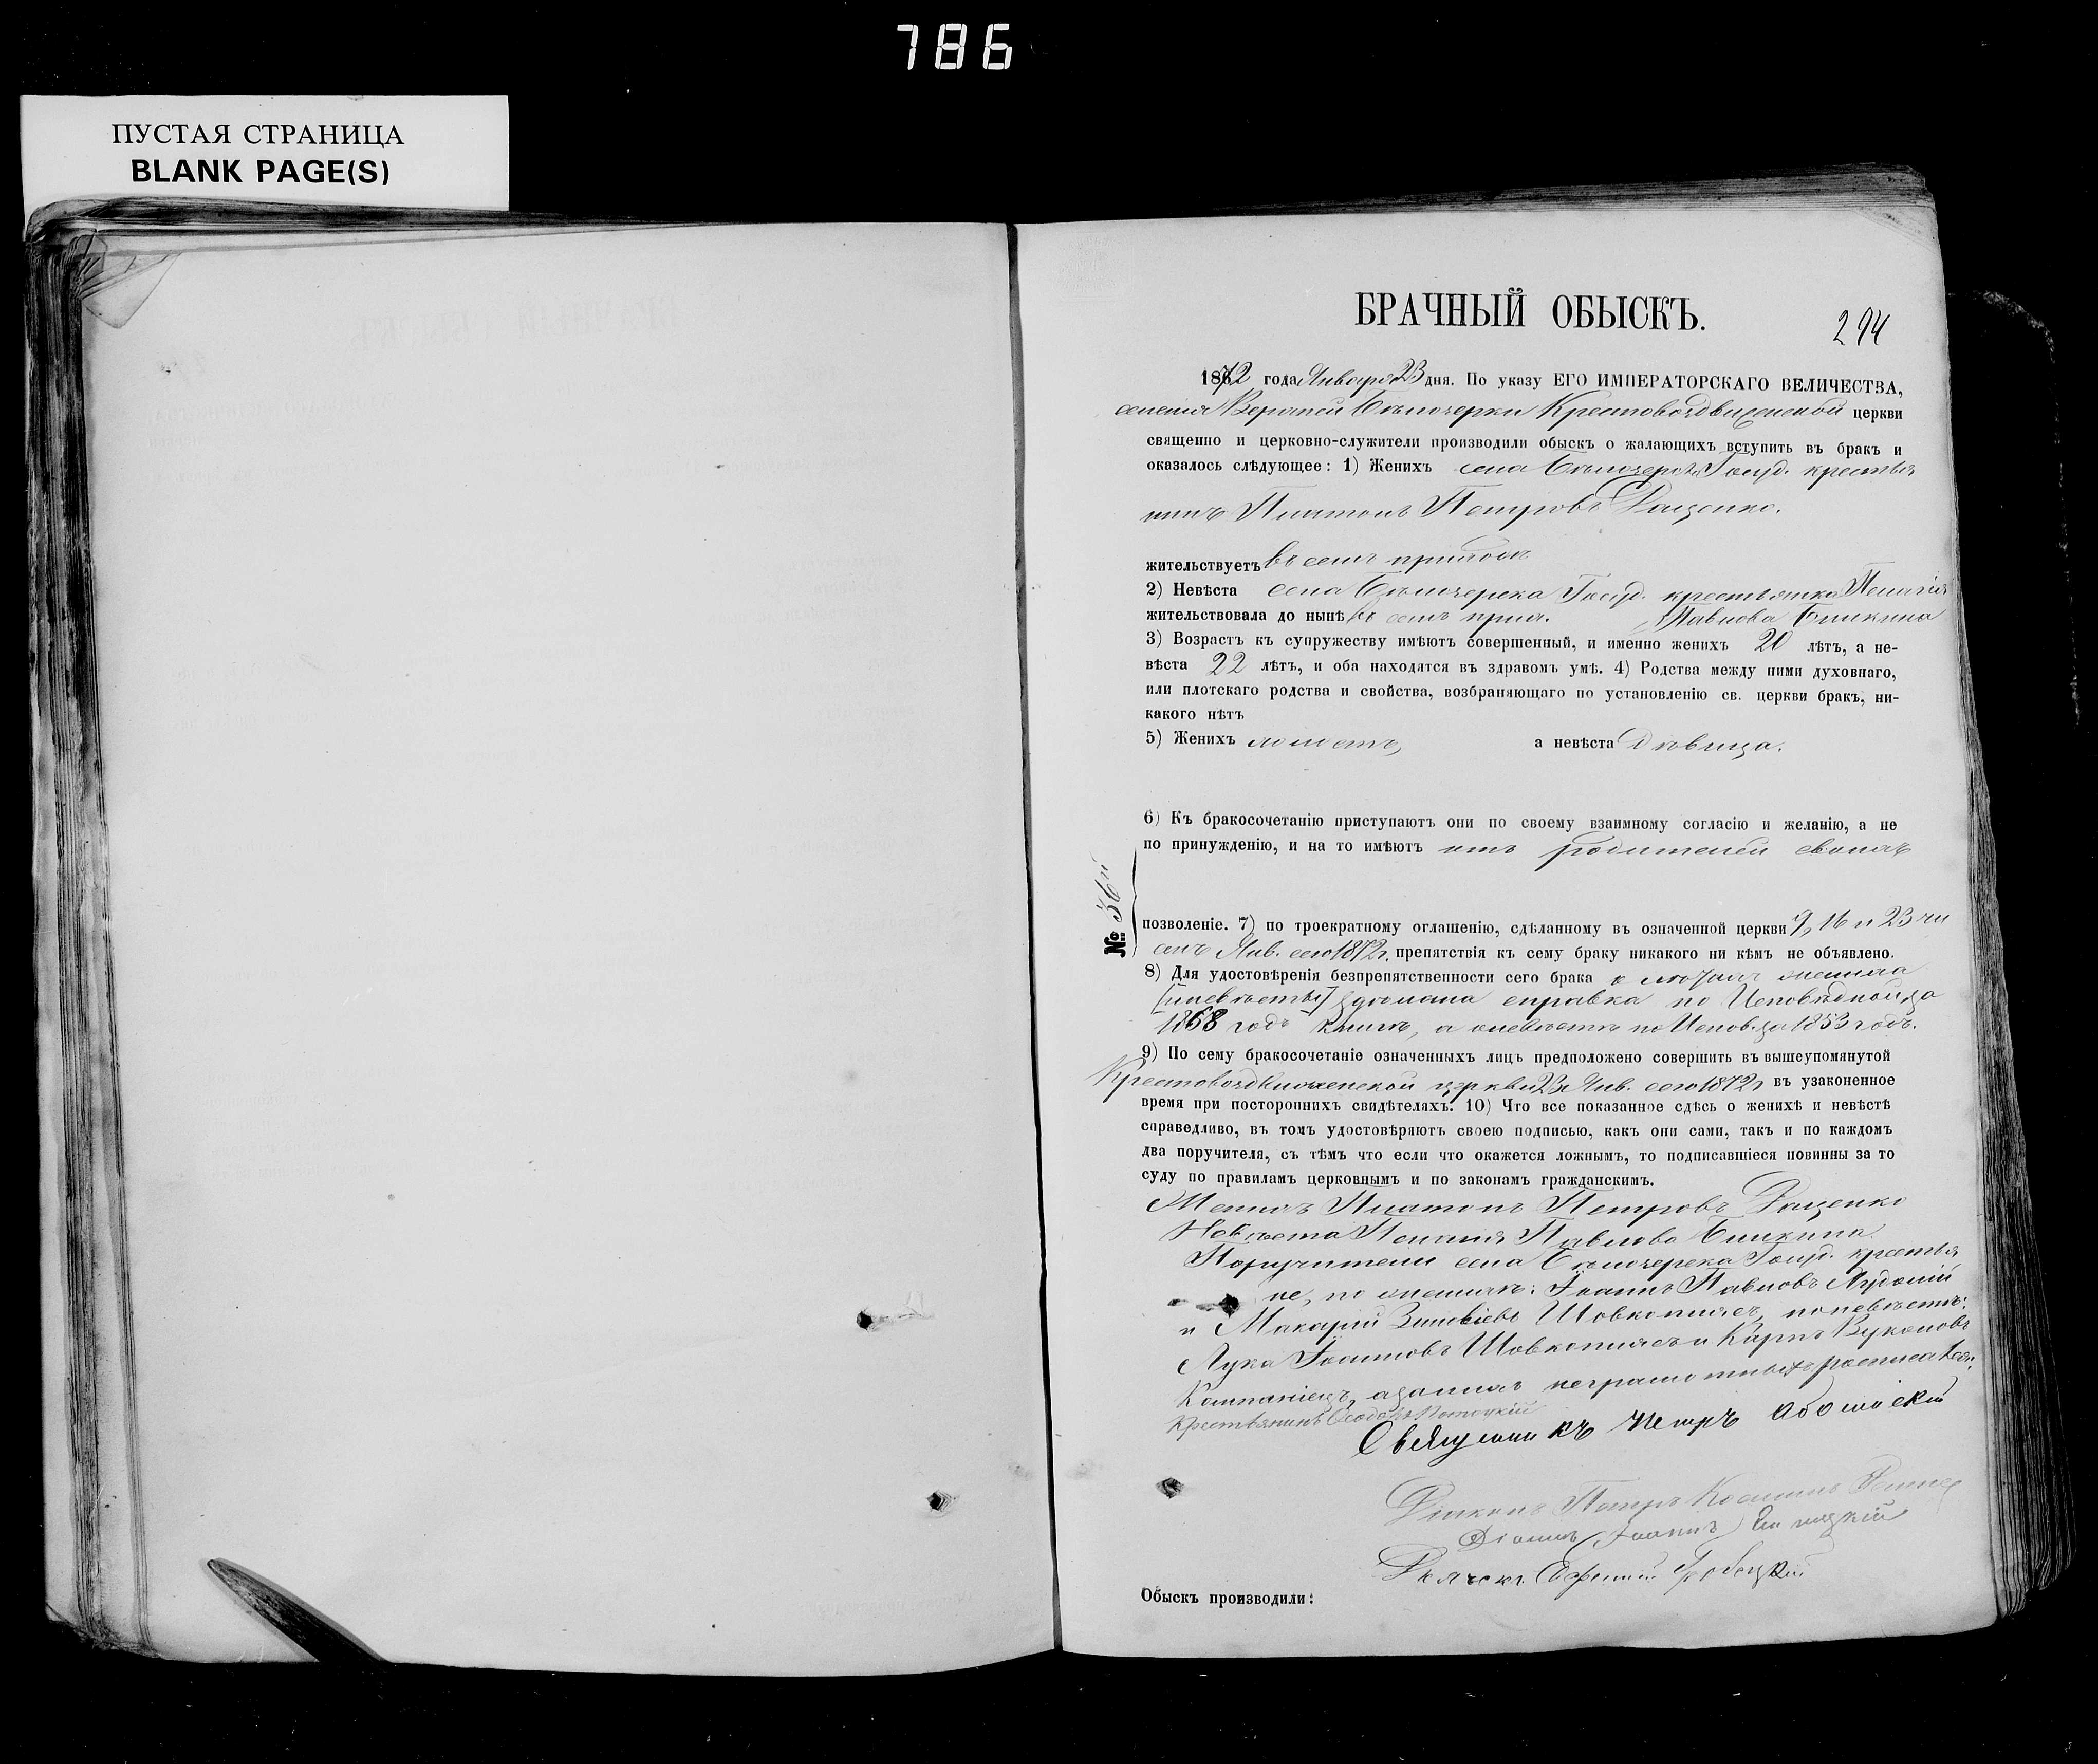 786
ПУСТАЯ СТРАНИЦА
BLANK PAGE(S)
БРАЧНЫЙ ОБЫСКЪ.
294
1872 года Января 23 дня. По указу ЕГО ИМПЕРАТОРСКАГО ВЕЛИЧЕСТВА,
селенія Верхней Бѣлозерки Крестовоздвиженской церкви
священно и церковно-служители производили обыскъ о жалающихъ вступить въ бракъ и
оказалось слѣдующее: 1) Женихъ села Бѣлозерки Госуд. крестья
нинъ Платонъ Петровъ Доценко.
жительствуетъ въ семъ приходѣ
2) Невѣста села Бѣлозерка Госуд. крестьянка Пелагія
жительствовала до нынѣ въ семъ прих. Павлова Билкина
3) Возрастъ къ супружеству имѣютъ совершенный, и именно женихъ 20 лѣтъ, а не-
вѣста 22 лѣтъ, и оба находятся въ здравомъ умѣ. 4) Родства между ними духовнаго,
или плотскаго родства и свойства, возбраняющаго по установленію св. церкви бракъ, ни-
какого нѣтъ
5) Женихъ холостъ, а невѣста Дѣвица.
6) Къ бракосочетанію приступаютъ они по своему взаимному согласію и желанію, а не
по принужденію, и на то имѣютъ отъ родителей своихъ
№: 36й
позволеніе. 7) по троекратному оглашенію, сдѣланному въ означенной церкви 9, 16 и 23 чи
селъ Янв. сего 1872 г. препятствія къ сему браку никакого ни кѣмъ не объявлено.
8) Для удостовѣренія безпрепятственности сего брака о лѣтахъ жениха
[и невѣсты] сдѣлана справка по Исповѣдной за
1868 годъ книгѣ, а о невѣстѣ по Испов. за 1853 годъ.
9) По сему бракосочетаніе означенныхъ лицъ предположено совершить въ вышеупомянутой
Крестовоздвиженской церкви 23 Янв. сего 1872 г. въ узаконенное
время при постороннихъ свидѣтеляхъ. 10) Что все показанное сдѣсь о женихѣ и невѣстѣ
справедливо, въ томъ удостовѣряютъ своею подписью, какъ они сами, такъ и по каждомъ
два поручителя, съ тѣмъ что если что окажется ложнымъ, то подписавшіеся повинны за то
суду по правиламъ церковнымъ и по законамъ гражданскимъ.
Женихъ Платонъ Петровъ Доценко
Невѣста Пелагія Павлова Билкина
Поручители села Бѣлозерка Госуд. крестья
не, по женихѣ: Іоаннъ Павловъ
и Макарій Зиновіевъ Шовкопляс, по невѣстѣ:
Лука Іоанновъ Шовкоплясъ и Карпъ
Компаніецъ, а за нихъ неграмотныхъ росписался
крестьянинъ Ѳеодоръ
Священникъ Петръ
Діаконъ Петръ
Діаконъ Іоаннъ
Дьячекъ Ефимій
Обыскъ производили: